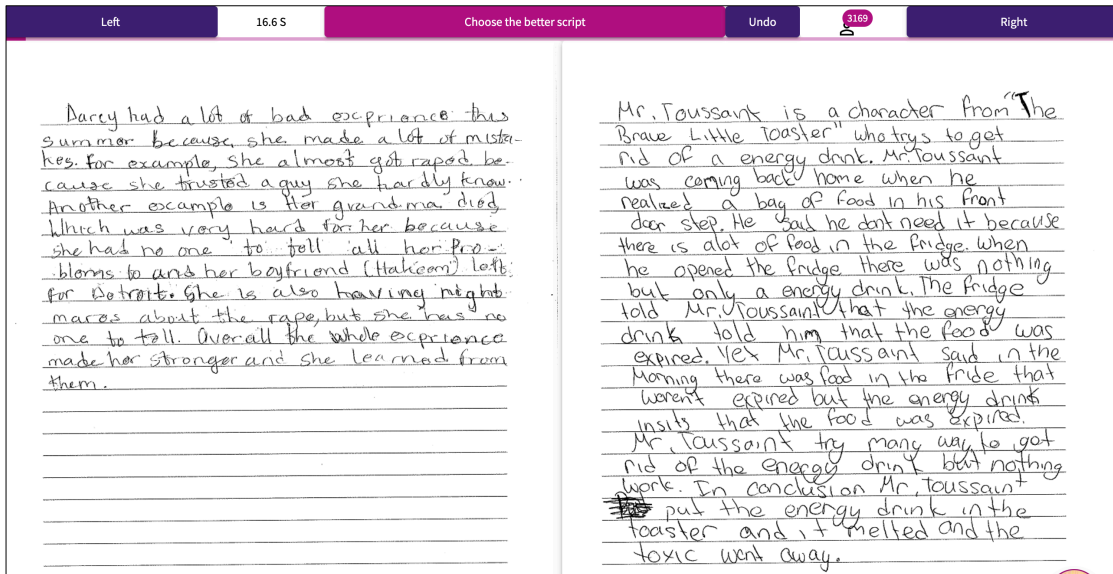 Left
16.6 S
Choose the better script
Undo
3169
Right
Darcy had a lot of bad excprience this
summer because, she made a lot of mista-
kes. for example, She almost got raped be-
cause she trusted a guy she hardly know.
Another excample is Her grandma died
Which was very hard for her because
she had no one to tell all her Pro-
blems to and her boyfriend (Hakeem) left
for Detroit. She is also having night
mares about the rape, but she has no
one to tell. Overall the whole excprience
made her stronger and she learned from
them.
Mr. Toussant is a character from "The
Brave Little Toaster" who trys to get
rid of a energy drink. Mr. Toussant
was coming back home when he
realized a bag of food in his front
door step. He said he dont need it because
there is alot of food in the fridge. When
he opened the fridge there was nothing
but only a energy drink. The fridge
told Mr. Toussaint that the energy
drink told him that the food was
expired. Yet Mr. Toussaint said in the
Morning there was food in the fride that
weren't expired but the energy drink
insits that the food was expired.
Mr. Toussaint try many way to get
rid of the energy drink but nothing
work. In conclusion Mr. Toussaint
put the energy drink in the
toaster and it melted and the
toxic went away.